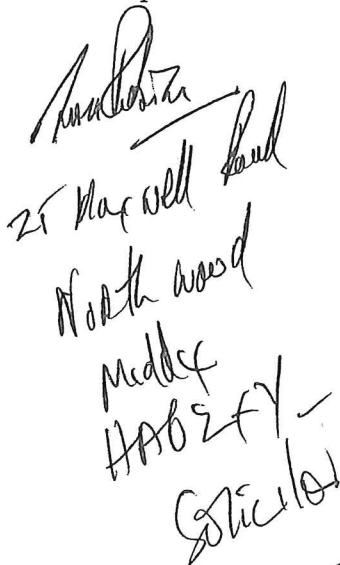 25 Maxwell Road
Northwood
Middx
HA6 2XY
Solicitor